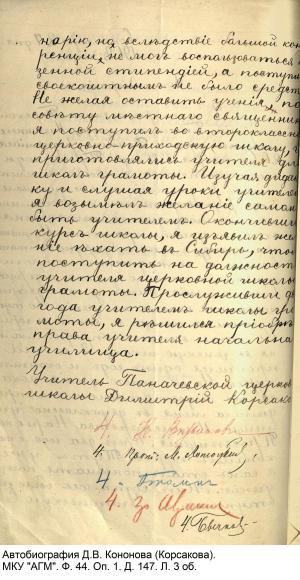 нарію, но вслѣдствіе большой кон
ренціи, не могъ воспользоваться к
зенной стипендіей, а поступи
своекоштнымъ не было средст
Не желая оставить ученія, по
совѣту мѣстнаго священник
я поступилъ во второклас
церковно-приходскую школу, г
приготовлялись учителя дл
школъ грамоты. Изучая дидак
ку и слушая уроки учителе
я возымѣлъ желаніе самому
быть учителемъ. Окончивши
курсъ школы, я изъявилъ жел
ніе ѣхать въ Сибирь, что
поступить на должност
учителя церковной школы
грамоты. Прослуживши д
года учителемъ школы гра
моты, я рѣшился пріобрѣ
права учителя начальна
училища.
Учитель Паначевской церков
школы Димитрій Корсако
4.
4. М.
4.
4.
4.
Автобиография Д.В. Кононова (Корсакова).
МКУ "АГМ". Ф. 44. Оп. 1. Д. 147. Л. 3 об.